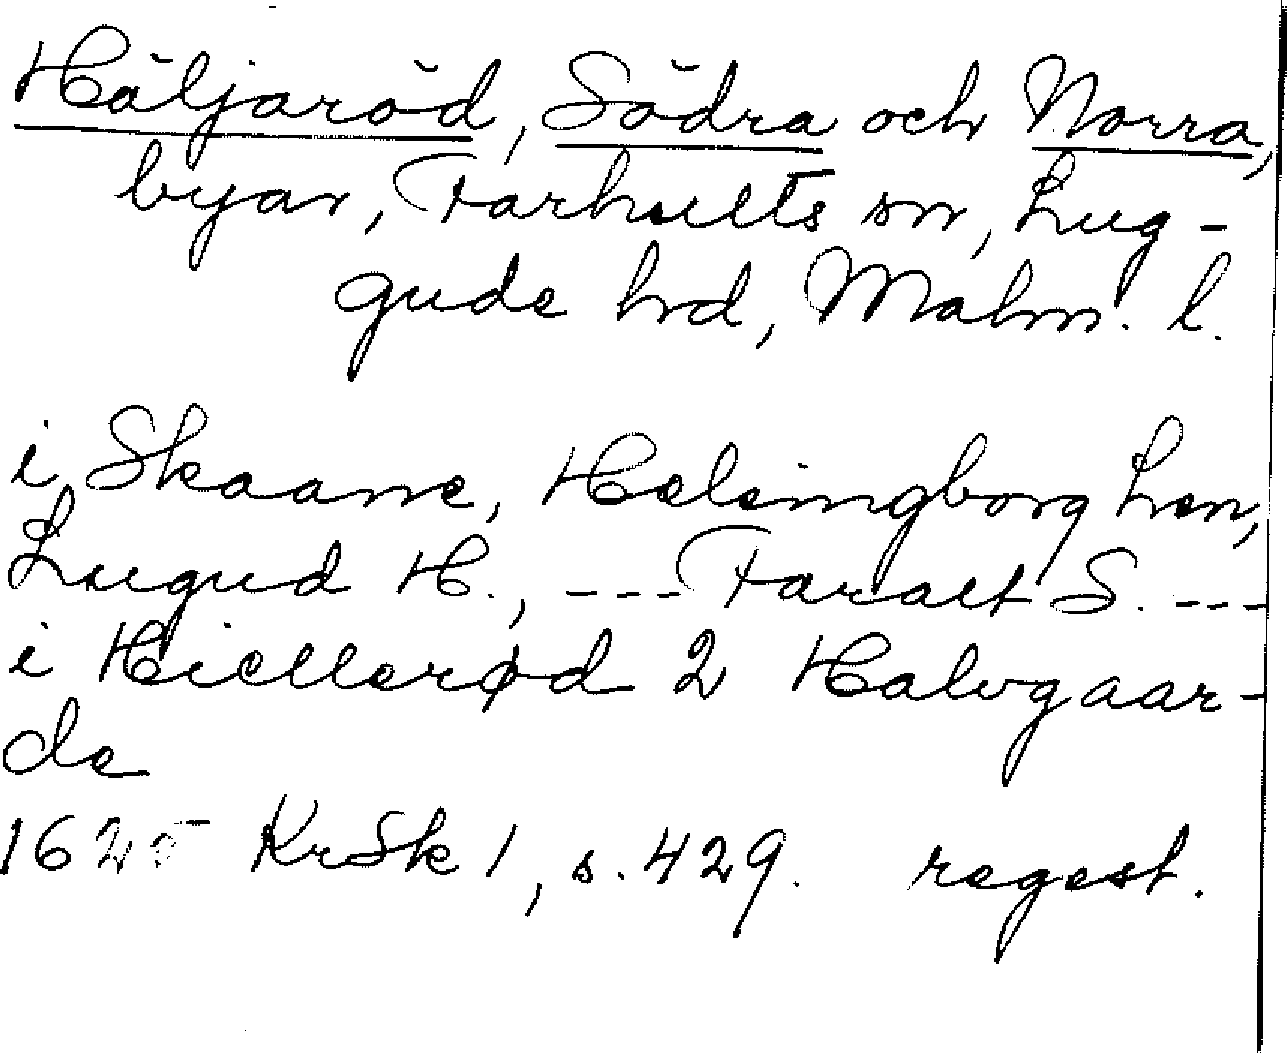 Häljaröd, Södra och Norra,
byar, Farhults sn, Lug-
gude hrd, Malm. l.
i Skaane, Helsingborg Len,
Lugud H., --- Faralt S. ---
i Hiellerød 2 Halvgaar-
de
1625 KrSk 1, s. 429. regest.